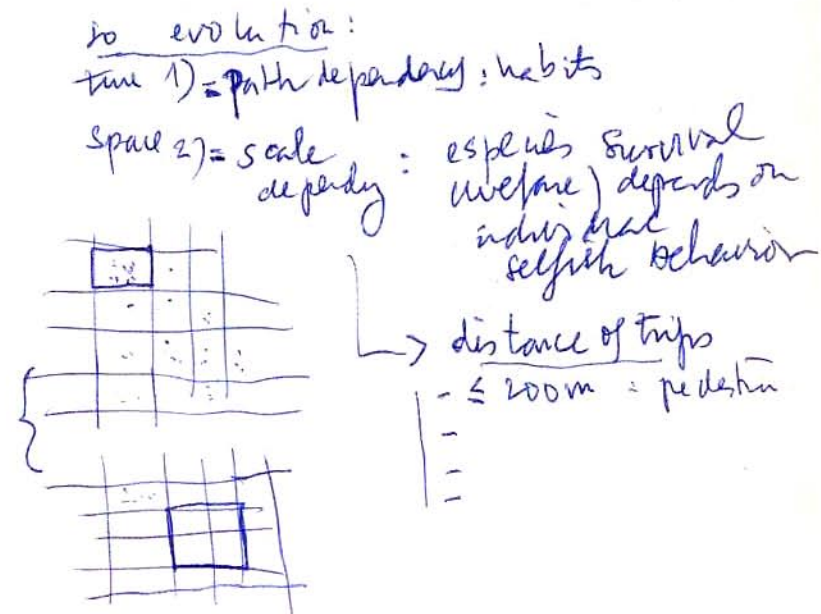 so evolution:
time 1) = path dependency : habits
space 2) = scale dependency : especies survival
(welfare) depends on
individual
selfish behavior
→ distance of trips
- ≤ 200m : pedestrian
-
-
-